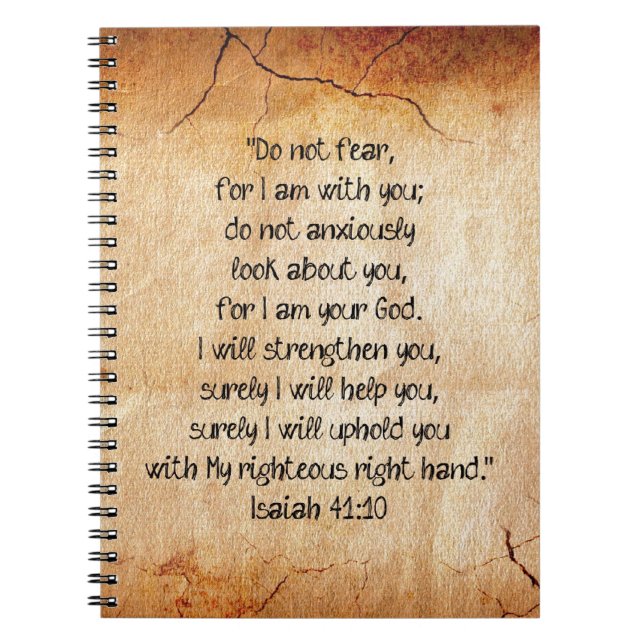 "Do not fear,
for I am with you;
do not anxiously
look about you,
for I am your God.
I will strengthen you,
surely I will help you,
surely I will uphold you
with My righteous right hand."
Isaiah 41:10